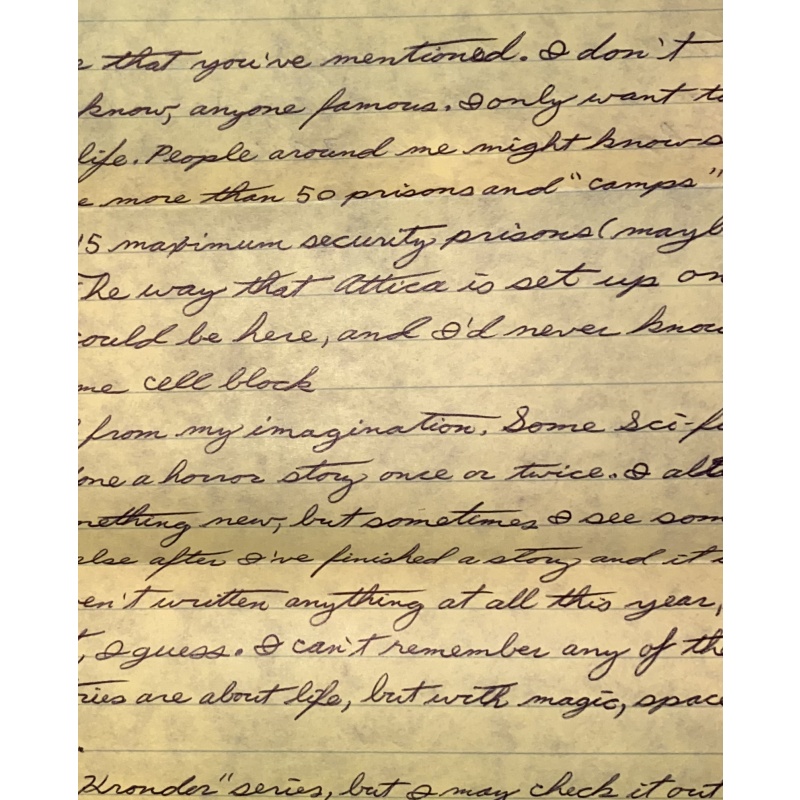 that you've mentioned. I don't
know, anyone famous. I only want to
life. People around me might know s
more than 50 prisons and "camps"
15 maximum security prisons (mayb
The way that Attica is set up on
ould be here, and I'd never know
me cell block
from my imagination. Some Sci-fi
one a horror story once or twice. I
mething new, but sometimes I see som
else after I've finished a story and it
en't written anything at all this year,
, I guess. I can't remember any of the
ries are about life, but with magic, space
Kronder" series, but I may check it out